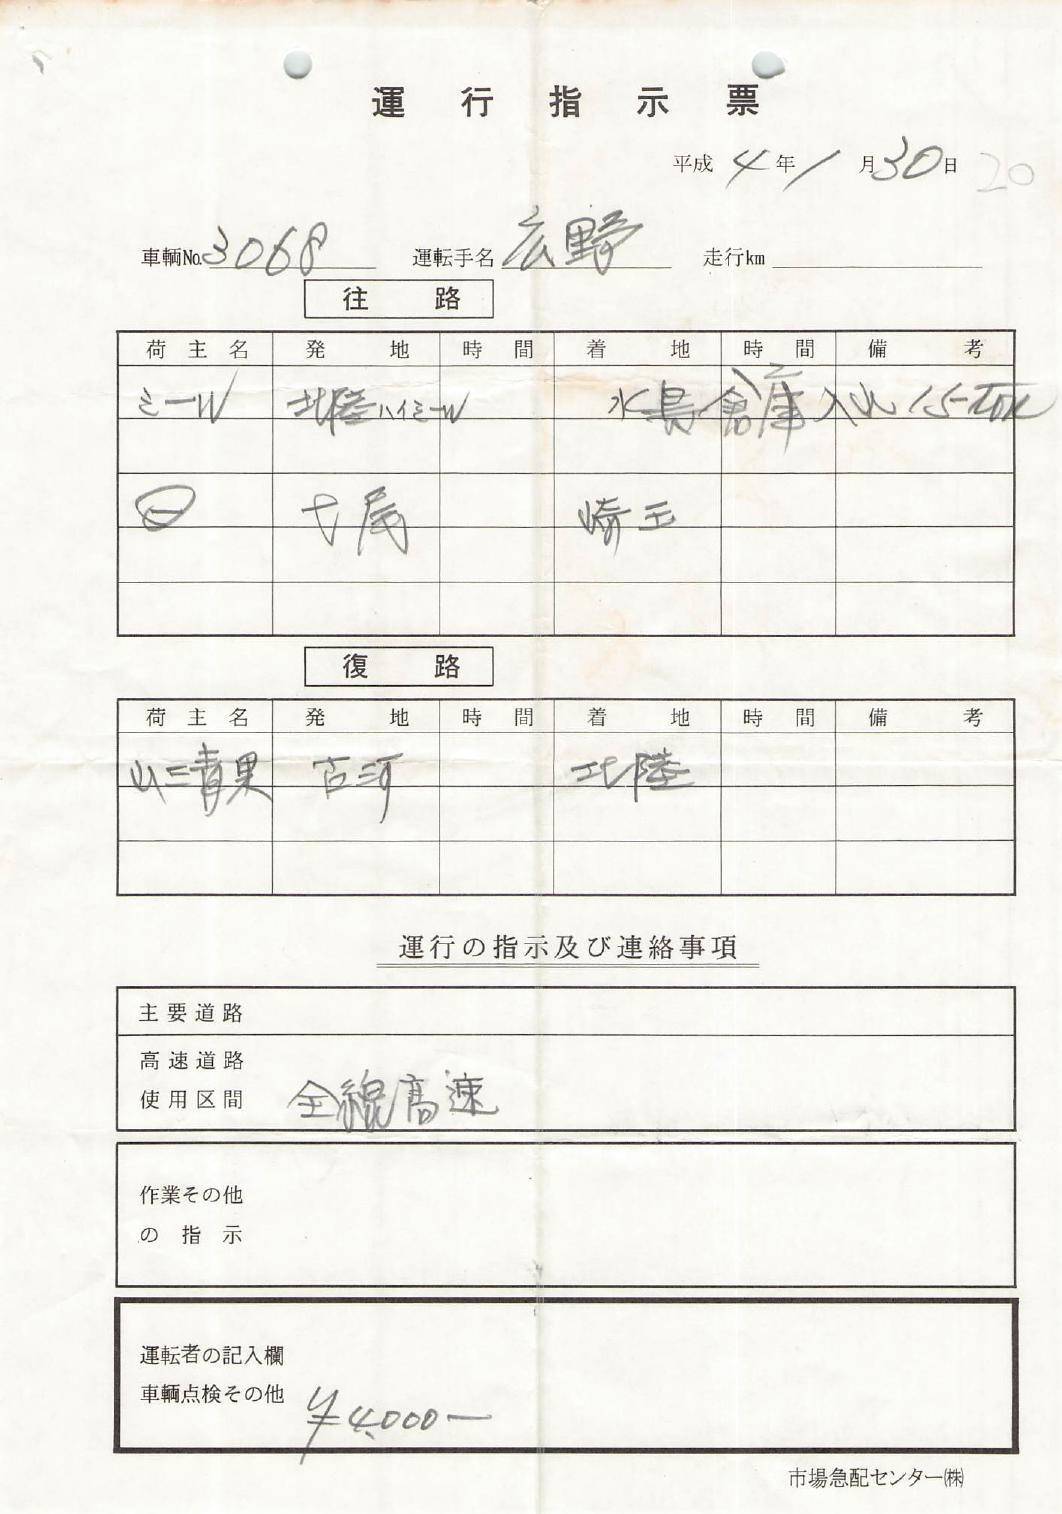 運行指示票
平成 4年 1月30日 20
車輌No. 3068 運転手名 広野 走行km
往路
荷主名 発地 時間 着地 時間 備考
ミール 北陸ハイミール 水島倉庫入れ
㊀ 七尾 埼玉
復路
荷主名 発地 時間 着地 時間 備考
山三青果 古河 北陸
運行の指示及び連絡事項
主要道路
高速道路
使用区間 全線高速
作業その他
の指示
運転者の記入欄
車輌点検その他 ¥4,000ー
市場急配センター㈱